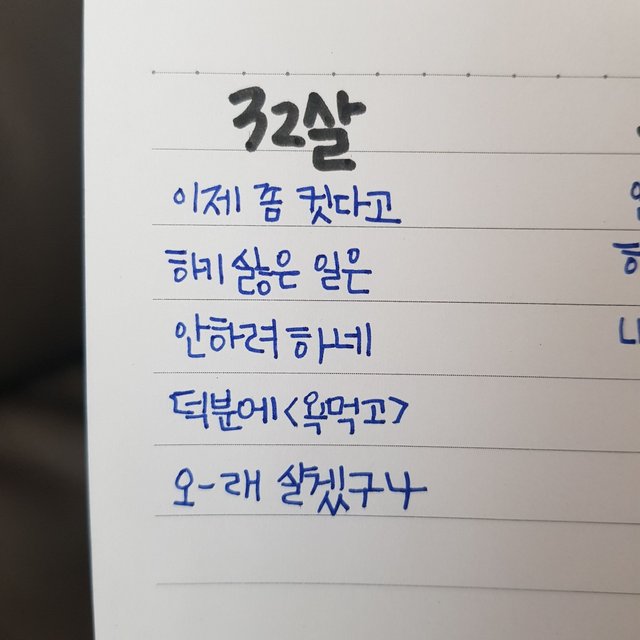 32살
이제 쫌 컷다고
하기 싫은 일은
안하려 하네
덕분에<욕먹고>
오-래 살겠구나